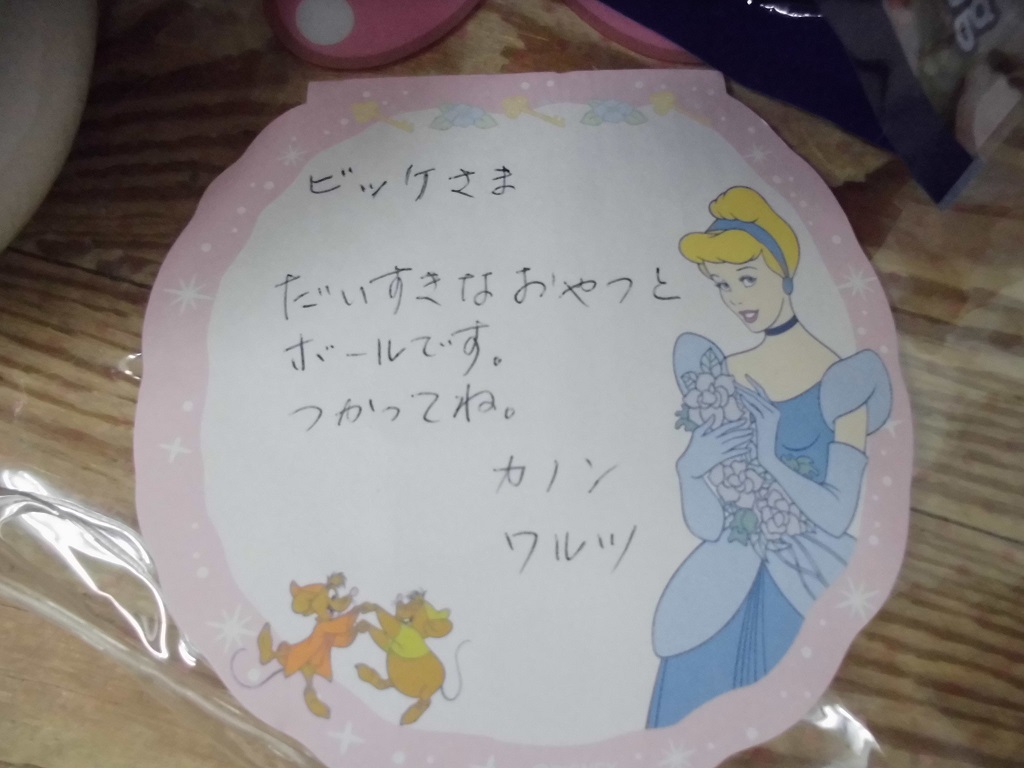 ビッケさま
だいすきなおやつと
ボールです。
つかってね。
カノン
ワルツ